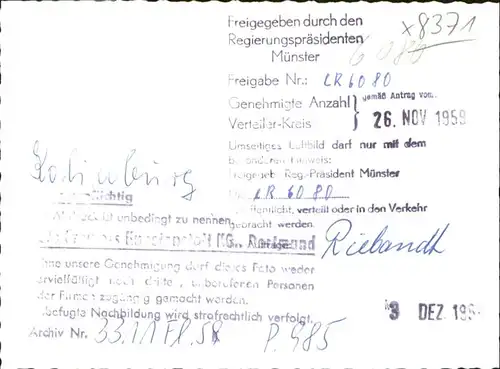 Freigegeben durch den
Regierungspräsidenten
Münster
x8371
6080
Freigabe Nr.: CR 6080
Genehmigte Anzahl
Verteiler-Kreis
gemäß Antrag vom:
26. NOV 1959
Umseitiges Luftbild darf nur mit dem
b anderen Hinweis:
Freigegeb. Reg.-Präsident Münster
CR 6080
öffentlicht, verteilt oder in den Verkehr
gebracht werden.
unbedingt zu nennen,
KG., Dortmund
Riebandt
ohne unsere Genehmigung darf dieses Foto weder
vervielfältigt noch dritten, unberufenen Personen
der Firmen zugängig gemacht werden.
befugte Nachbildung wird strafrechtlich verfolgt.
3 DEZ. 195
Archiv Nr. 33.11 Fl. 58 P. 985